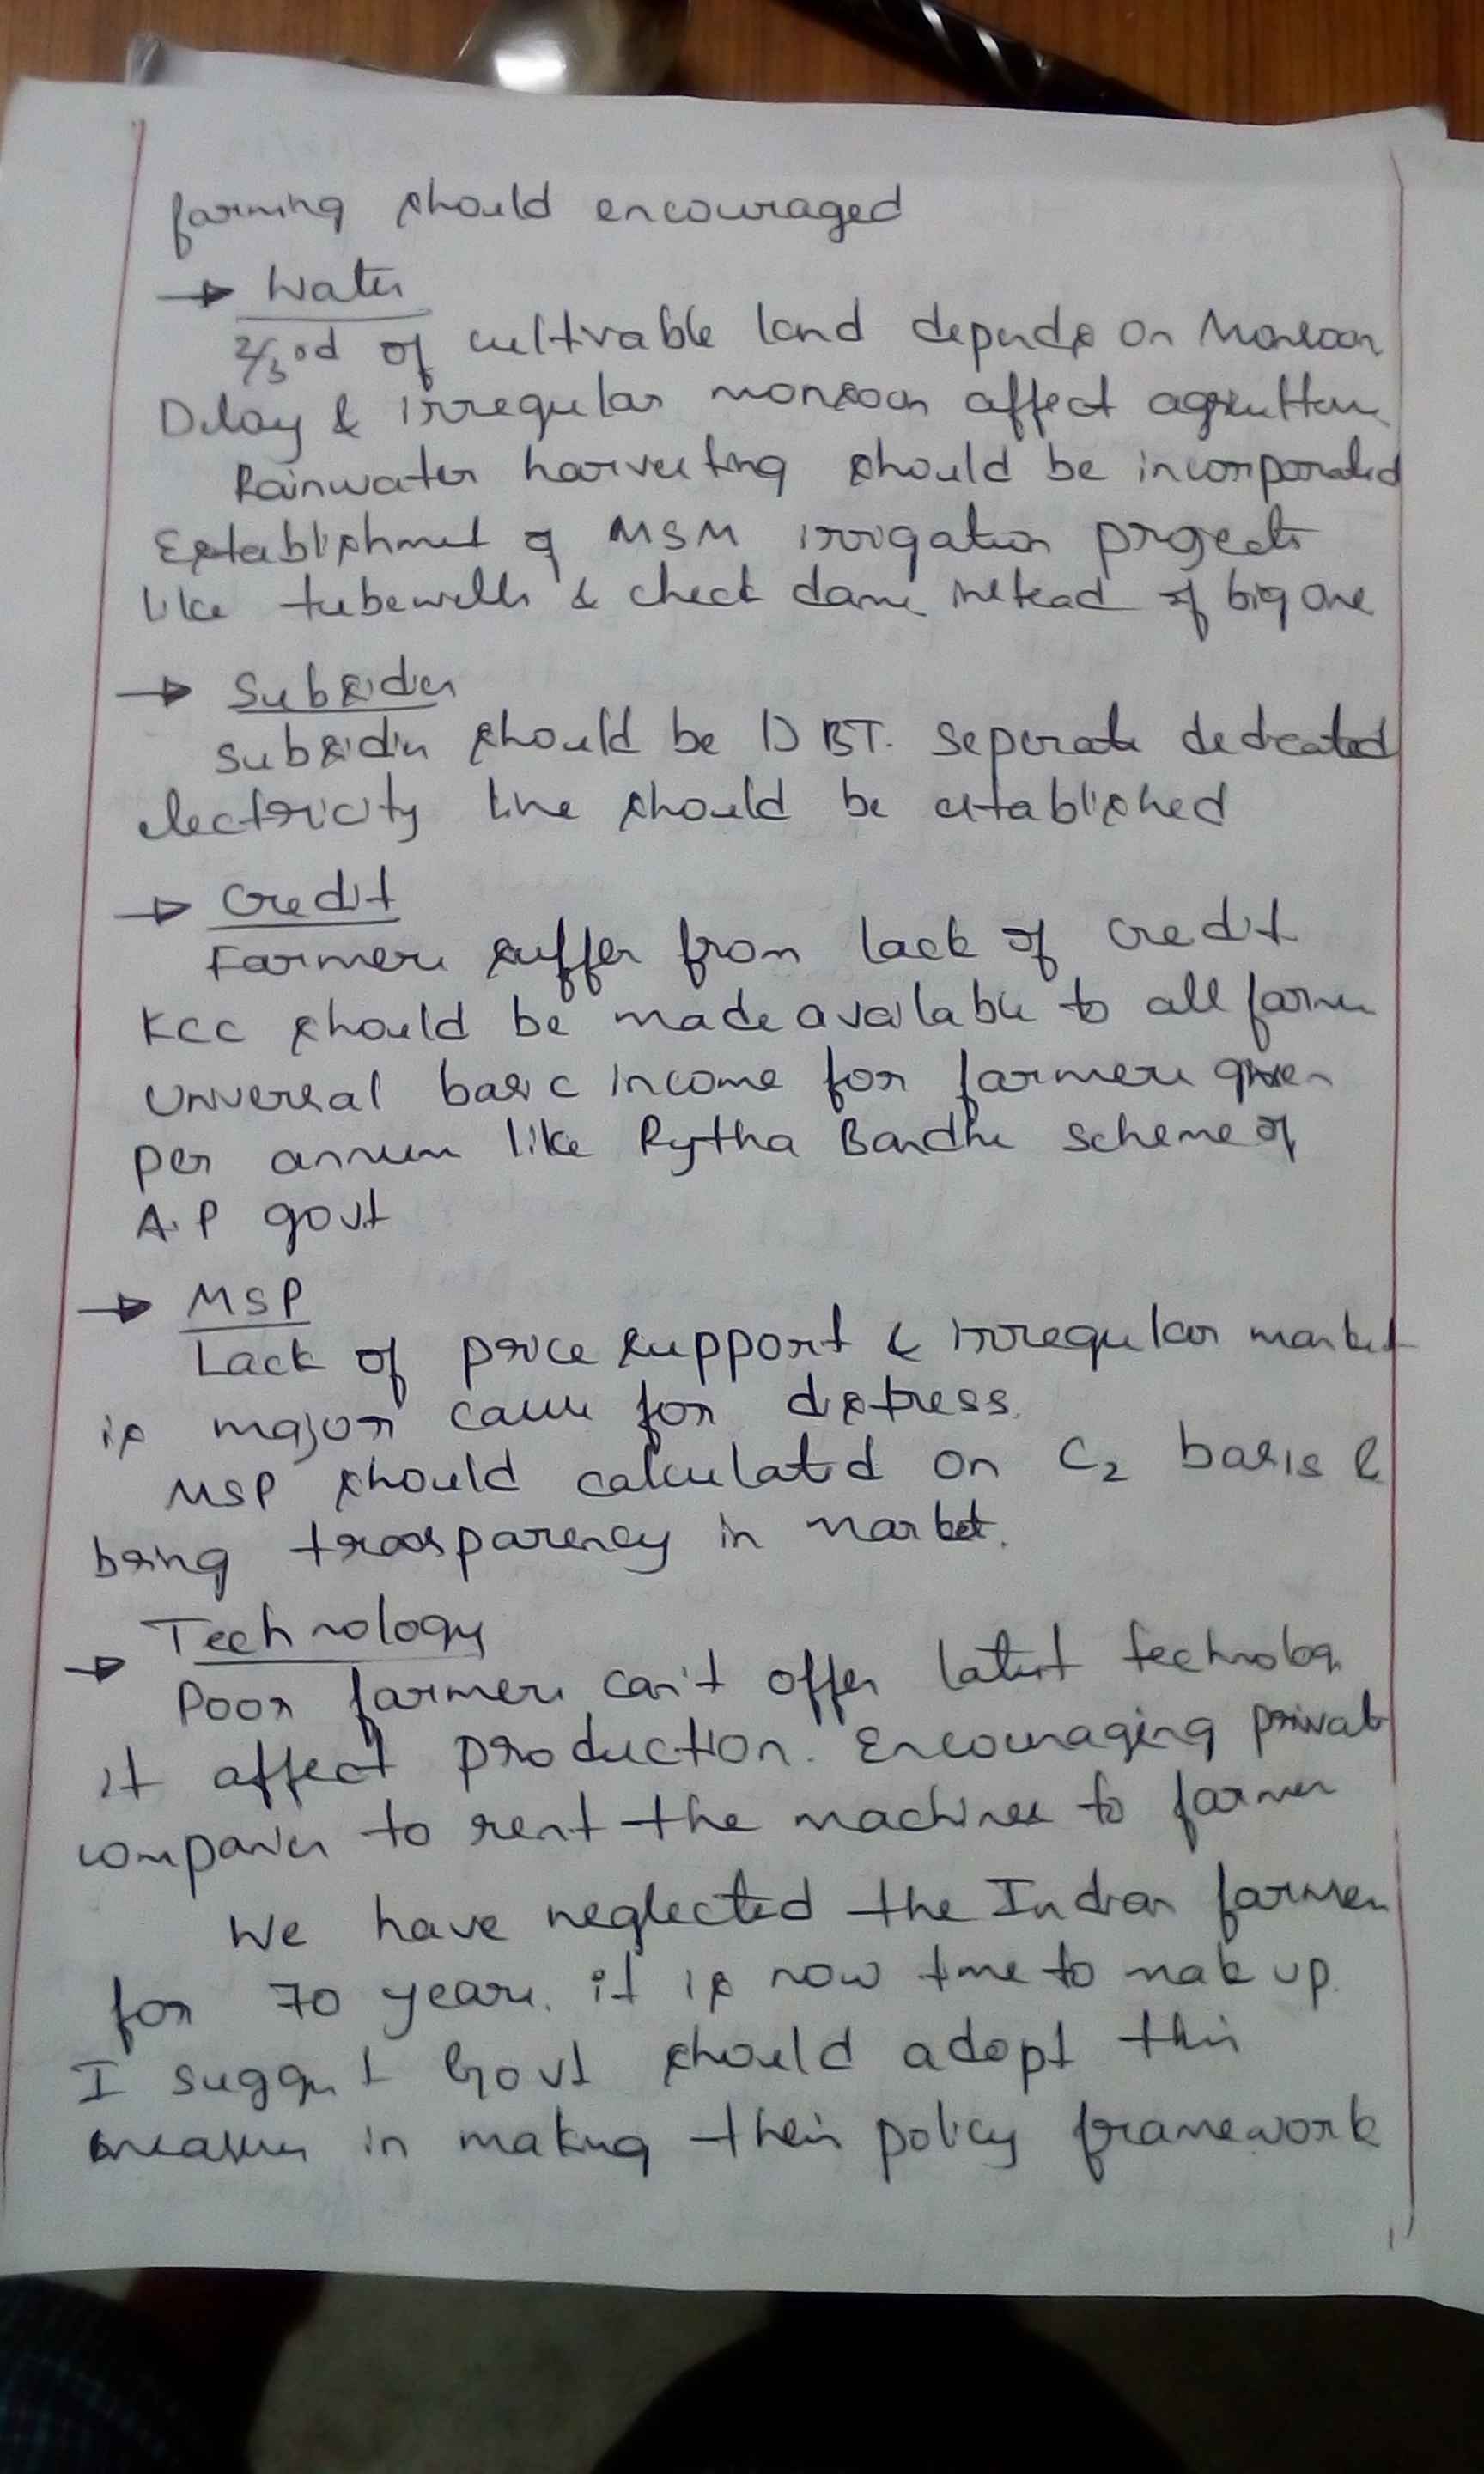 farming should encouraged
→ Water
2/3rd of cultivable land depends on Monsoon
Delay & irregular monsoon affect agriculture
Rainwater harvesting should be incorporated
Establishment of MSM irrigation projects
like tubewells & check dams instead of big one
→ Subsidies
subsidies should be DBT. seperate dedicated
electricity line should be established
→ Credit
Farmers suffer from lack of credit
KCC should be made available to all farmers
Universal basic income for farmers given
per annum like Rytha Bandhu scheme of
A.P govt
→ MSP
Lack of price support & irregular market
is major cause for distress.
MSP should calculated on C2 basis &
bring transparency in market.
→ Technology
Poor farmers can't offer latest technology
it affect production. Encouraging private
companies to rent the machines to farmer
We have neglected the Indian farmer
for 70 years. it is now time to make up.
I suggest Govt should adopt this
measures in making their policy framework